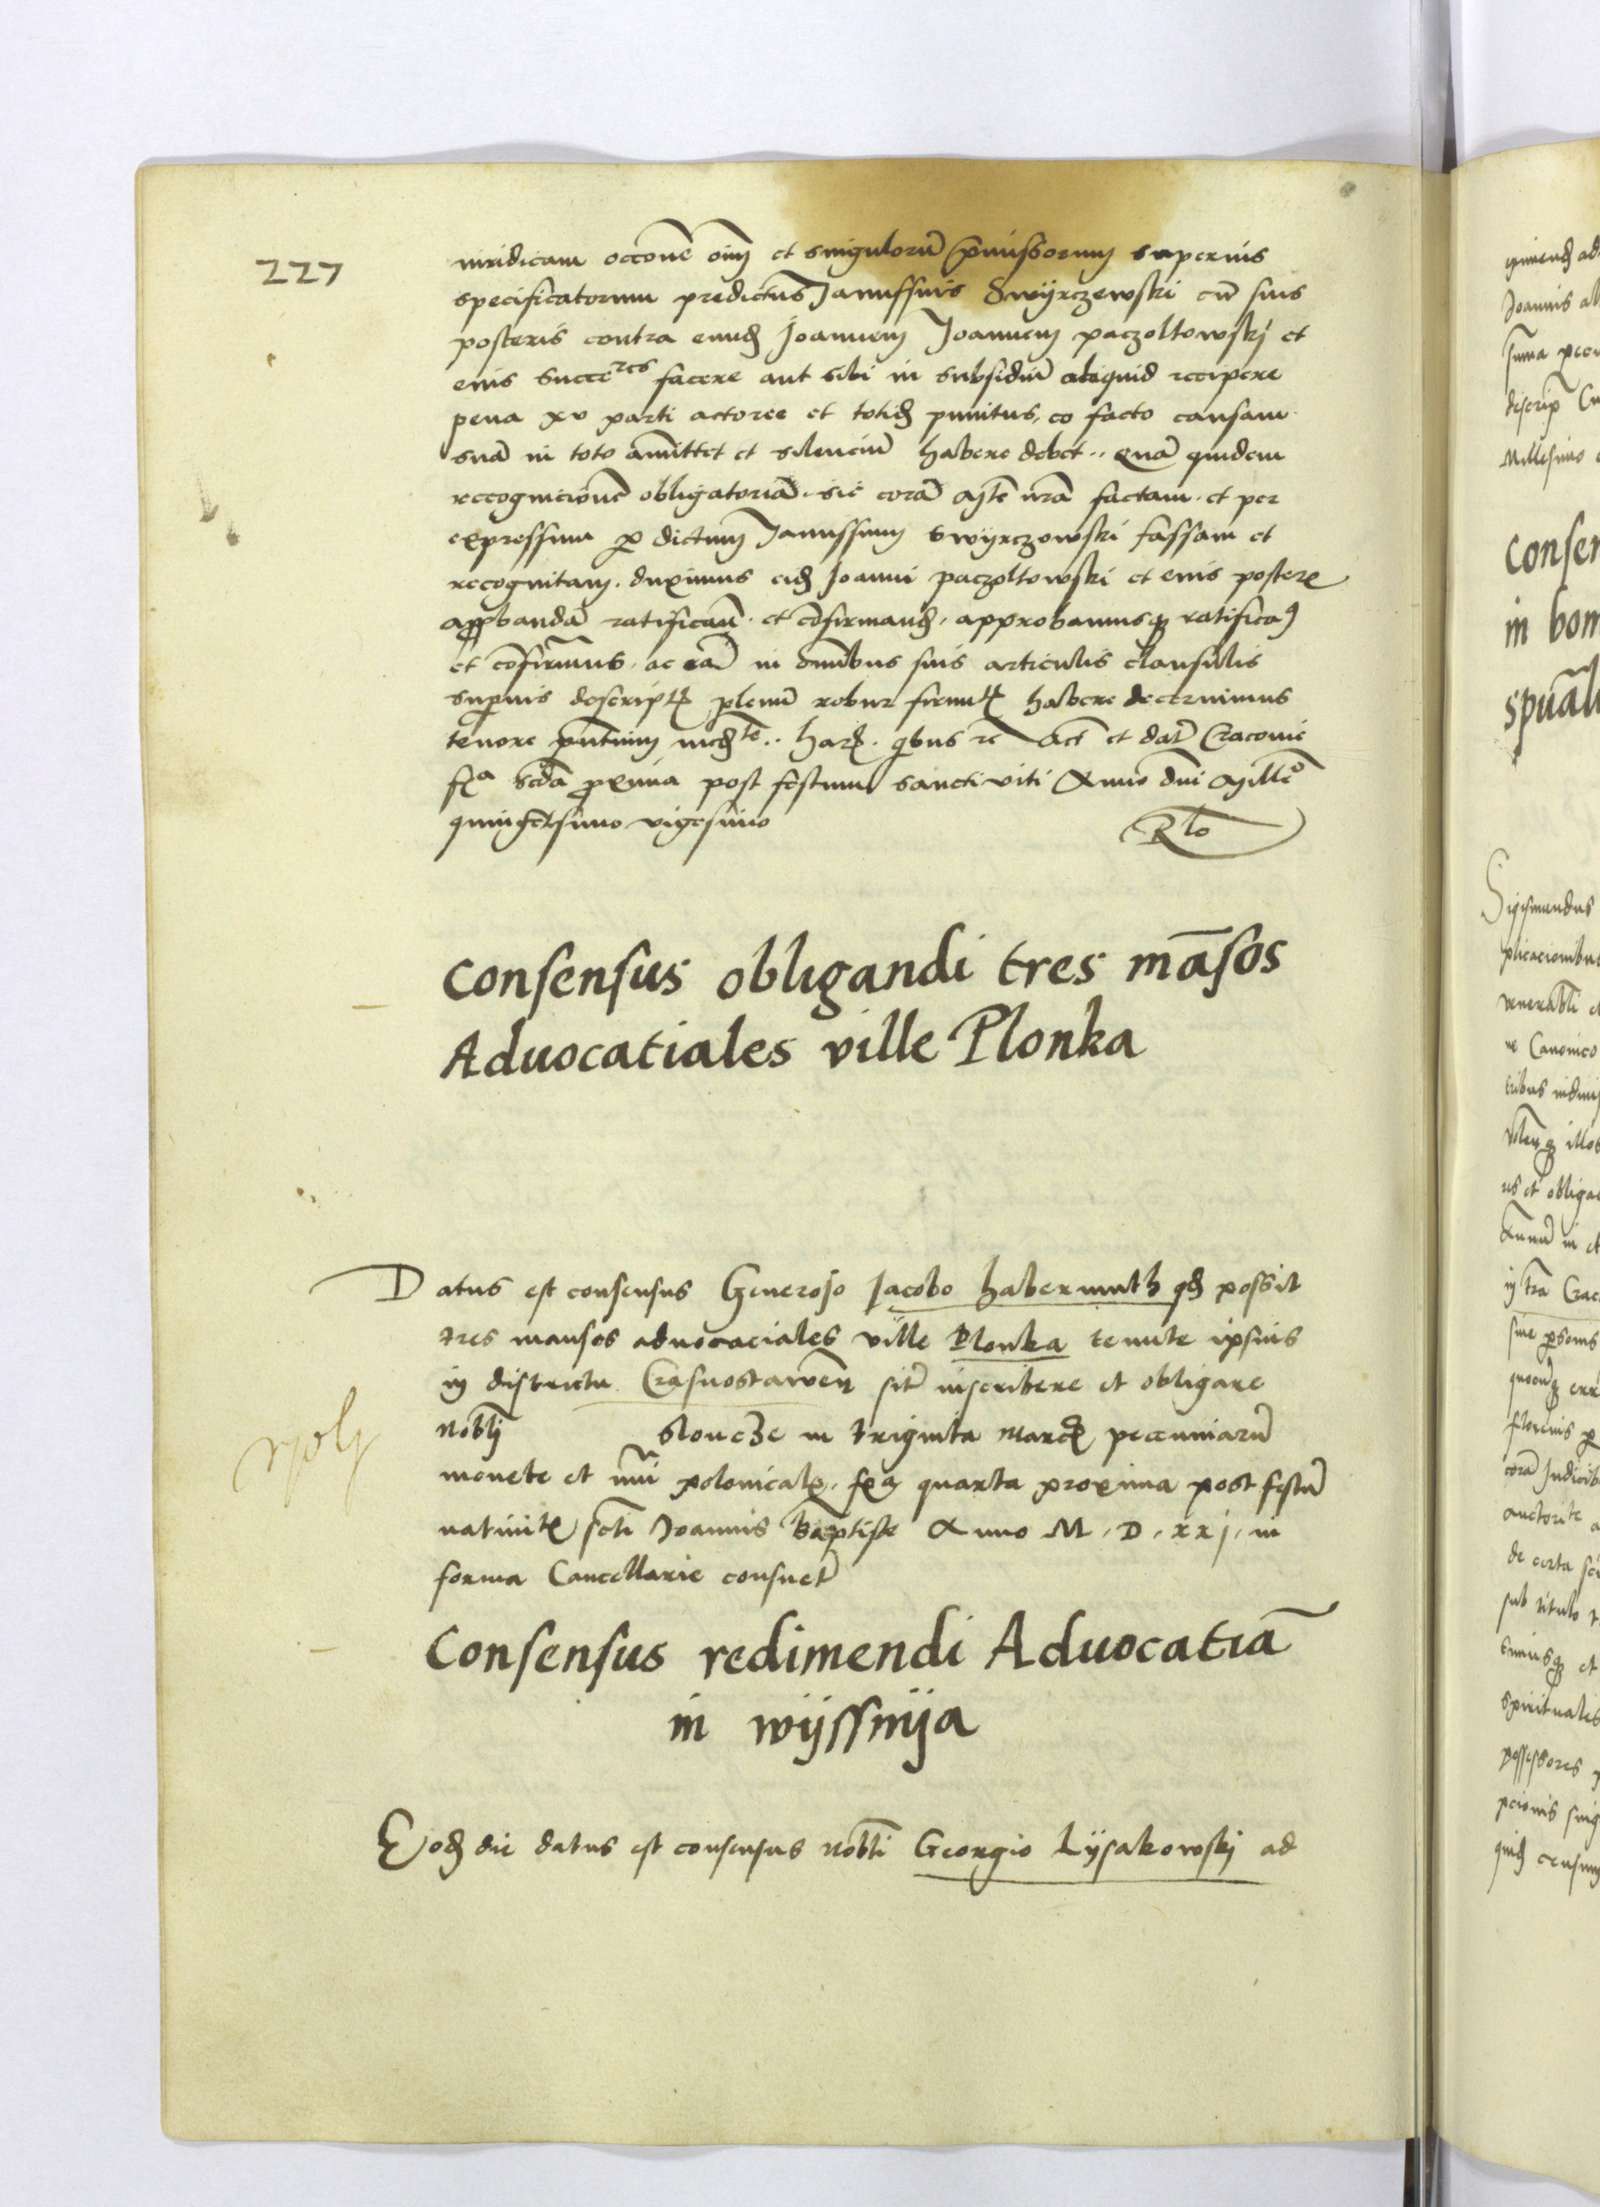 227
iuridicam occone oim et singulorū p̄missorum superius
specificatorum predictus Janussius Swyrczewski cū suis
posteris contra eund Joannem Joannem paczoltowskj et
eius succeres facere aut sibi in subsidiū aliquid recipere
pena xv parti actoree et totid punitus, eo facto causam
suā in toto amittet et silenciū habere debet .. Quā quidem
recognicionē obligatoriā sic corā Mte nrā factam et per
expressum p dictum Janussium Swyrczowski fassam et
recognitam. duximus eid Joanni paczoltowski et eius poster
approbandā ratifican et cōfirmand, approbamusq ratifica
et cōfirmamus, ac eā in omībus suis articulis clausulis
superius descript plenū robur firmit habere decernimus
tenore pntium med te .. har. qbus rc Act et dat Cracouie
fa scda proxima post festum sancti viti Anno dni Mille
quingētesimo vigesimo
Rto
Consensus obligandi tres māsos
Aduocatiales ville Plonka
Datus est consensus Generoso Jacobo Habermuth qd possit
tres mansos aduocaciales ville Plonka tenute ipsius
in districtu Crasnostawen sit inscribere et obligare
Nobli Sloncze in triginta marc peccuniarū
monete et nūi polonicalr. fra quarta proxima post festū
natiuitr scti Joannis Baptiste Anno M. D. xxj. in
forma Cancellarie consuet
Consensus redimendi Aduocatiā
in wyssnya
Eod die datus est consensus nobli Georgio Lysakowskj ad
Joannis
Millesimo
Consen
in bon
spūal
Sigismundus
plicacionibu
venerabli
Canonico
et obliga
corā Judicib
de certa
sub titulo
spirituales
possessores